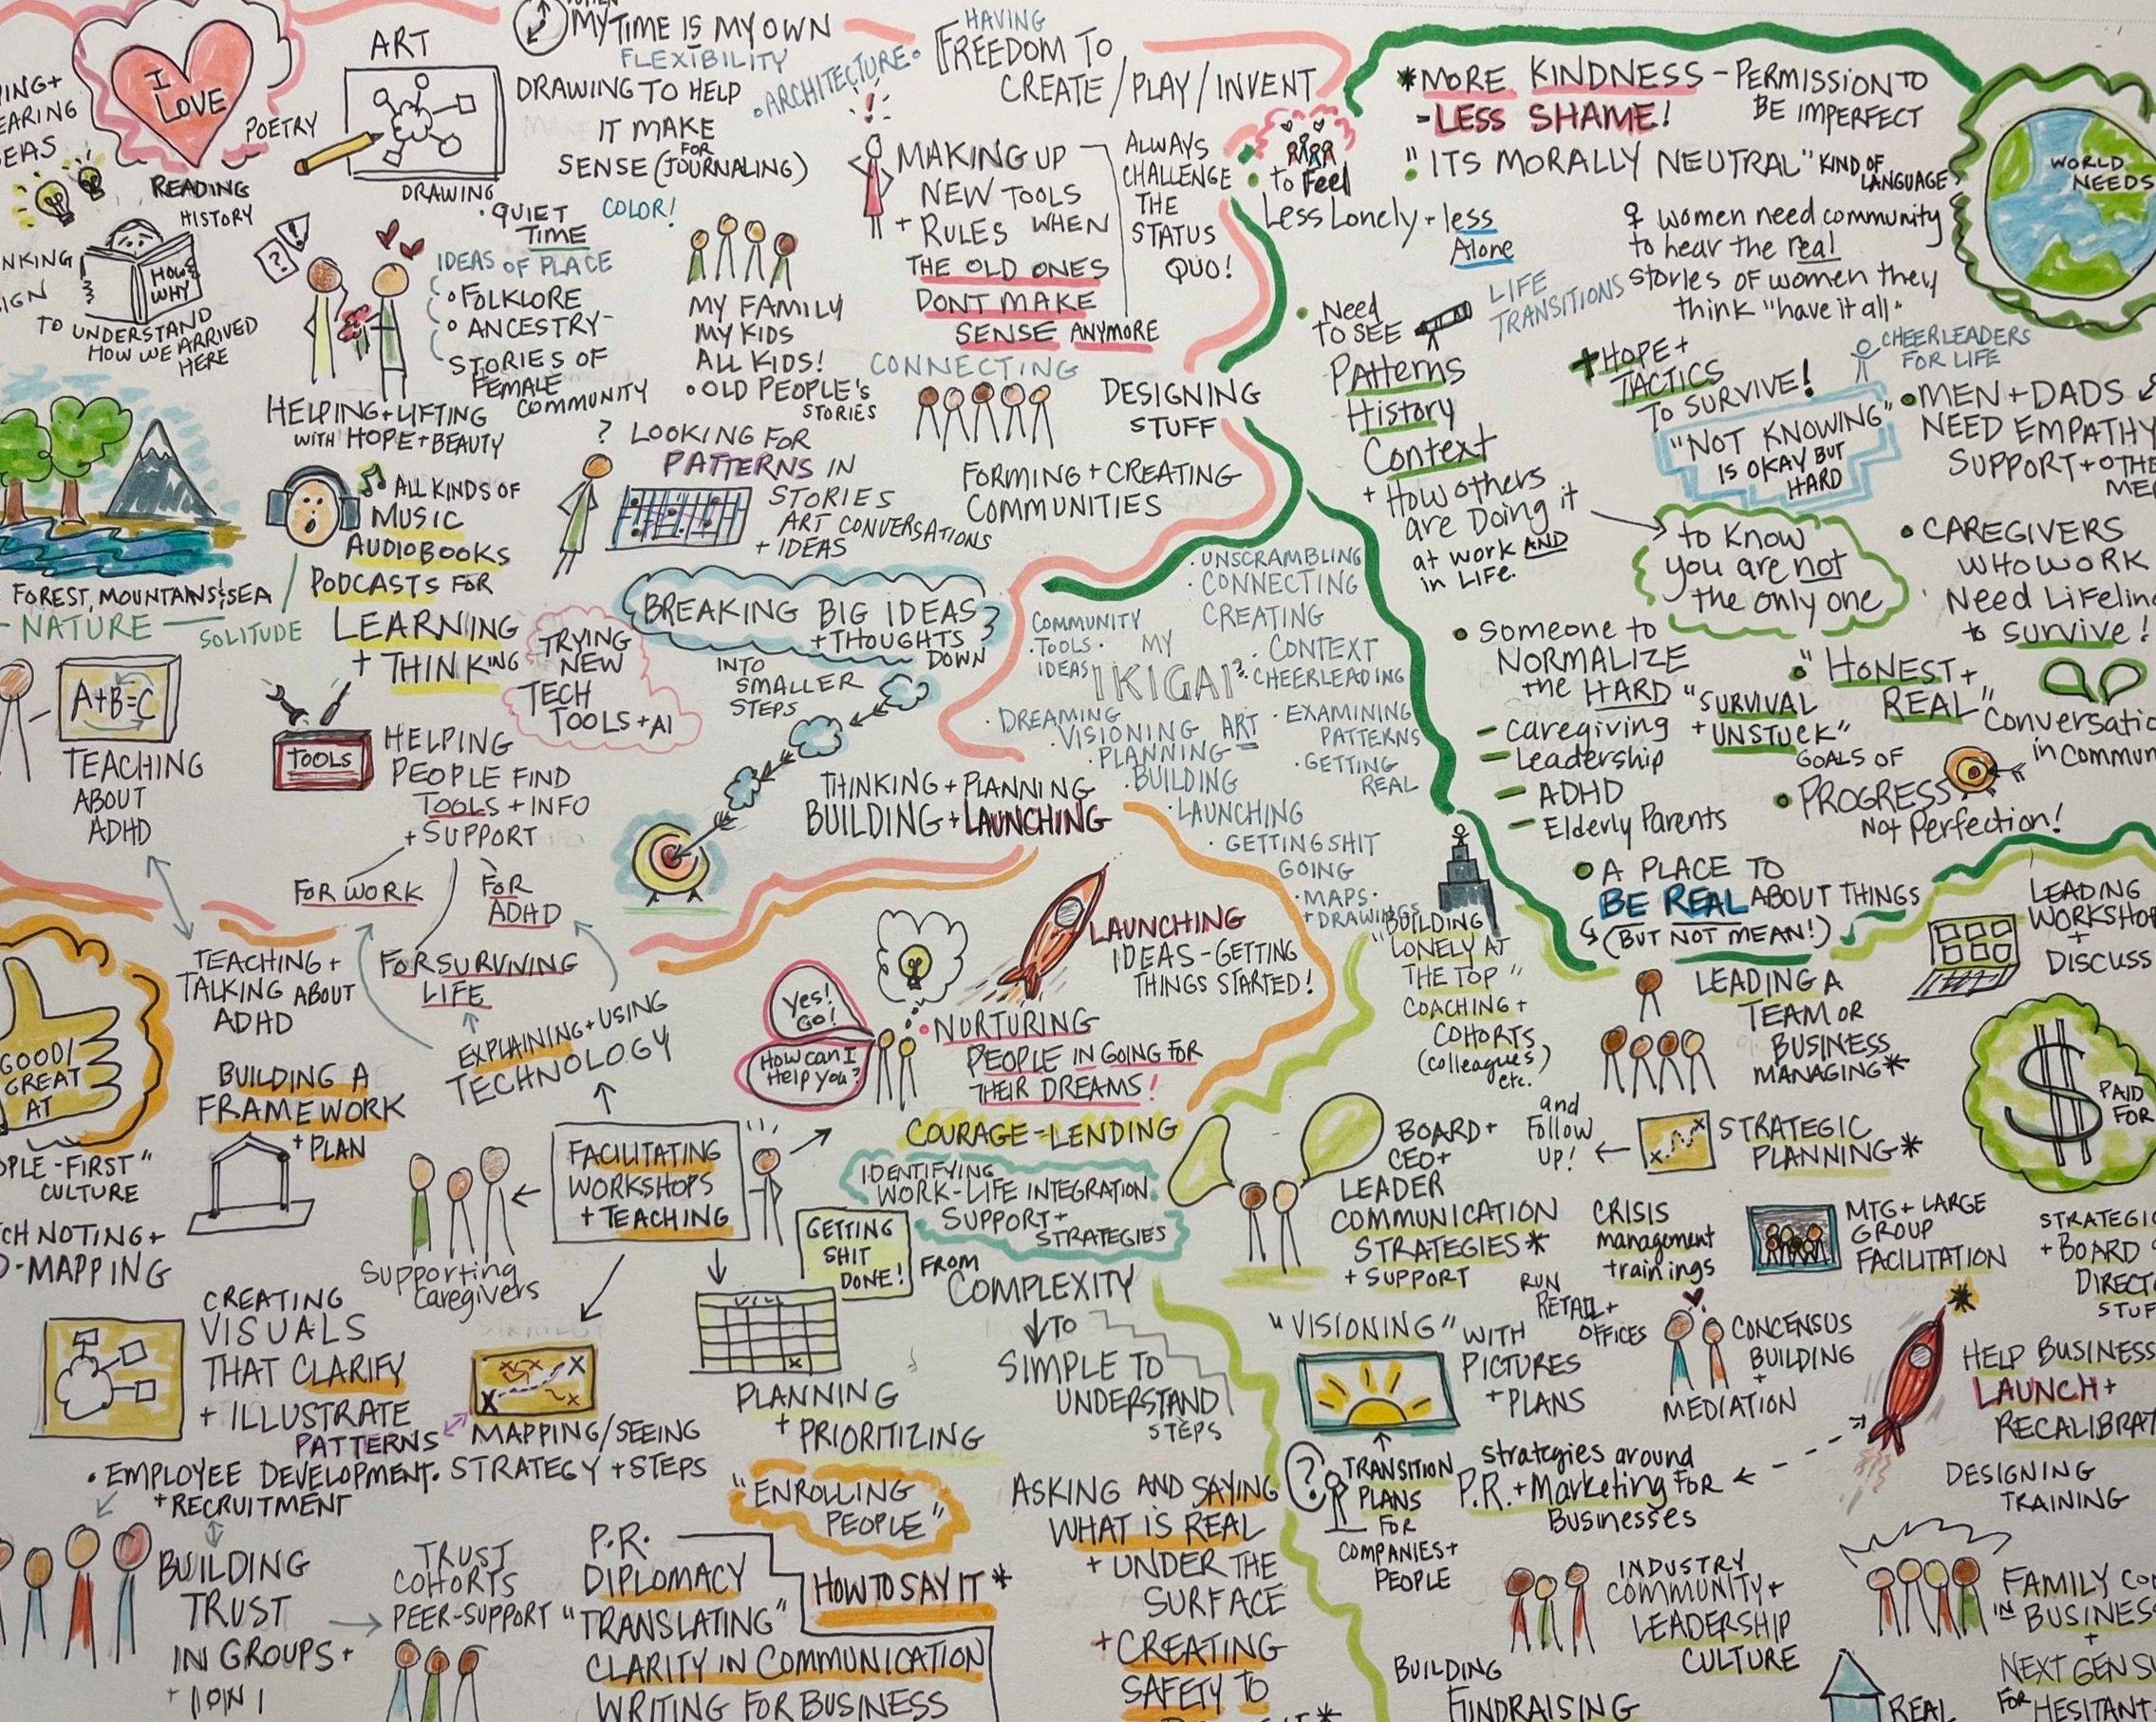 I
LOVE
POETRY
READING
HISTORY
HOW &
WHY
TO UNDERSTAND
HOW WE ARRIVED
HERE
ART
DRAWING
MY TIME IS MY OWN
FLEXIBILITY
DRAWING TO HELP
IT MAKE
FOR
SENSE (JOURNALING)
• ARCHITECTURE •
HAVING
FREEDOM TO
CREATE / PLAY / INVENT
• QUIET
TIME
COLOR!
IDEAS OF PLACE
• FOLKLORE
• ANCESTRY-
STORIES OF
FEMALE
COMMUNITY
? !
HELPING + LIFTING
WITH HOPE + BEAUTY
MY FAMILY
MY KIDS
ALL KIDS!
• OLD PEOPLE'S
STORIES
MAKING UP
NEW TOOLS
+ RULES WHEN
THE OLD ONES
DONT MAKE
SENSE ANYMORE
ALWAYS
CHALLENGE
THE
STATUS
QUO!
CONNECTING
DESIGNING
STUFF
FORMING + CREATING
COMMUNITIES
? LOOKING FOR
PATTERNS IN
STORIES
ART CONVERSATIONS
+ IDEAS
FOREST, MOUNTAINS & SEA
- NATURE -
SOLITUDE
ALL KINDS OF
MUSIC
AUDIOBOOKS
PODCASTS FOR
LEARNING
+ THINKING
TRYING
NEW
TECH
TOOLS + AI
BREAKING BIG IDEAS
+ THOUGHTS
DOWN
INTO
SMALLER
STEPS
THINKING + PLANNING
BUILDING + LAUNCHING
A+B=C
TEACHING
ABOUT
ADHD
TOOLS
HELPING
PEOPLE FIND
TOOLS + INFO
+ SUPPORT
FOR WORK
FOR
ADHD
FOR SURVIVING
LIFE
COMMUNITY
• TOOLS •
IDEAS
MY
IKIGAI?
• UNSCRAMBLING
• CONNECTING
CREATING
• CONTEXT
• CHEERLEADING
• DREAMING
• VISIONING
ART
• PLANNING
• BUILDING
• EXAMINING
PATTERNS
• GETTING
REAL
• LAUNCHING
• GETTING SHIT
GOING
• MAPS •
+ DRAWINGS
* MORE KINDNESS - PERMISSION TO
BE IMPERFECT
- LESS SHAME!
• "ITS MORALLY NEUTRAL" KIND OF
LANGUAGE
WORLD
NEEDS
• to Feel
Less Lonely + less
Alone
♀ women need community
to hear the real
stories of women they
think "have it all"
• Need
TO SEE
Patterns
History
Context
+ How others
are Doing it
at work AND
in LiFe.
LIFE
TRANSITIONS
+ HOPE +
TACTICS
TO SURVIVE!
CHEERLEADERS
FOR LIFE
"NOT KNOWING"
IS OKAY BUT
HARD
• MEN + DADS
NEED EMPATHY
to Know
you are not
the only one
• CAREGIVERS
WHO WORK
to survive!
• Someone to
NORMALIZE
the HARD
- Caregiving
- Leadership
- ADHD
- Elderly Parents
"SURVIVAL
+ UNSTUCK"
• "HONEST +
REAL"
in
GOALS OF
• PROGRESS
Not Perfection!
• A PLACE TO
BE REAL ABOUT THINGS
(BUT NOT MEAN!)
GOOD/
GREAT
AT
CULTURE
TEACHING +
TALKING ABOUT
ADHD
BUILDING A
FRAMEWORK
+ PLAN
EXPLAINING + USING
TECHNOLOGY
FACILITATING
WORKSHOPS
+ TEACHING
Supporting
Caregivers
Yes!
Go!
How can I
Help you?
LAUNCHING
IDEAS - GETTING
THINGS STARTED!
• NURTURING
PEOPLE IN GOING FOR
THEIR DREAMS!
COURAGE-LENDING
IDENTIFYING
WORK-LIFE INTEGRATION
SUPPORT +
STRATEGIES
GETTING
SHIT
DONE!
FROM
COMPLEXITY
TO
SIMPLE TO
UNDERSTAND
STEPS
PLANNING
+ PRIORITIZING
CREATING
VISUALS
THAT CLARIFY
+ ILLUSTRATE
PATTERNS
MAPPING/SEEING
STRATEGY + STEPS
• EMPLOYEE DEVELOPMENT •
+ RECRUITMENT
BUILDING
TRUST
IN GROUPS +
TRUST
COHORTS
PEER-SUPPORT
"ENROLLING
PEOPLE"
P.R.
DIPLOMACY
"TRANSLATING"
CLARITY IN COMMUNICATION
WRITING FOR BUSINESS
HOW TO SAY IT *
ASKING AND SAYING
WHAT IS REAL
+ UNDER THE
SURFACE
+ CREATING
SAFETY TO
BUILDING
"LONELY AT
THE TOP"
COACHING +
COHORTS
(colleagues)
etc.
LEADING A
TEAM OR
BUSINESS
MANAGING *
LEADING
+
DISCUSS
$
PAID
FOR
BOARD +
CEO +
LEADER
COMMUNICATION
STRATEGIES *
+ SUPPORT
and
Follow
UP!
STRATEGIC
PLANNING *
CRISIS
management
trainings
MTG + LARGE
GROUP
FACILITATION
RUN
RETAIL +
OFFICES
CONCENSUS
BUILDING
+
MEDIATION
"VISIONING" WITH
PICTURES
+ PLANS
?
TRANSITION
PLANS
FOR
COMPANIES +
PEOPLE
strategies around
P.R. + Marketing FOR
Businesses
HELP BUSINESS
LAUNCH +
DESIGNING
TRAINING
INDUSTRY
COMMUNITY +
LEADERSHIP
CULTURE
BUILDING
FUNDRAISING
FAMILY
IN BUSINESS
+
NEXT GEN
FOR HESITANT
REAL